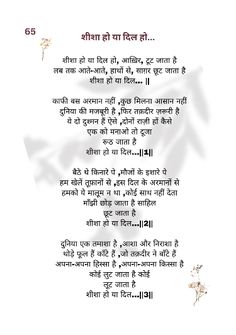 65
शीशा हो या दिल हो...
शीशा हो या दिल हो, आख़िर, टूट जाता है
लब तक आते-आते, हाथों से, साग़र छूट जाता है
शीशा हो या दिल... ||
काफी बस अरमान नहीं ,कुछ मिलना आसान नहीं
दुनिया की मजबूरी है ,फिर तक़दीर ज़रूरी है
ये दो दुश्मन हैं ऐसे ,दोनों राज़ी हों कैसे
एक को मनाओ तो दूजा
रूठ जाता है
शीशा हो या दिल...||1||
बैठे थे किनारे पे ,मौजों के इशारे पे
हम खेलें तूफ़ानों से ,इस दिल के अरमानों से
हमको ये मालूम न था ,कोई साथ नहीं देता
माँझी छोड़ जाता है साहिल
छूट जाता है
शीशा हो या दिल...||2||
दुनिया एक तमाशा है ,आशा और निराशा है
थोड़े फूल हैं काँटे हैं ,जो तक़दीर ने बाँटे हैं
अपना-अपना हिस्सा है ,अपना-अपना किस्सा है
कोई लुट जाता है कोई
लूट जाता है
शीशा हो या दिल...||3||